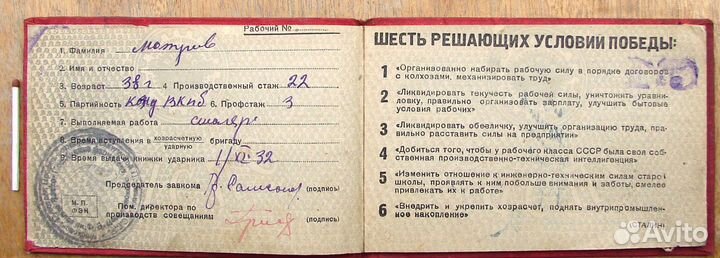 Рабочий №
1. Фамилия Мотрив
2. Имя и отчество
3. Возраст 38 г 4 Производственный стаж 22
5. Партийность Кад ВКПб 6. Профстаж 3
7. Выполняемая работа столяр
8. Время вступления в хозрасчетную ударную бригаду
9. Время выдачи книжки ударника 1/XI 32
Председатель завкома (подпись)
М. П.
ФЗК
Пом. директора по
производств совещаниям (подпись)
ШЕСТЬ РЕШАЮЩИХ УСЛОВИИ ПОБЕДЫ:
1 «Организованно набирать рабочую силу в порядке договоров
с колхозами, механизировать труд»
2 «Ликвидировать текучесть рабочей силы, уничтожить уравни-
ловку, правильно организовать зарплату, улучшить бытовые
условия рабочих»
3 «Ликвидировать обезличку, улучшить организацию труда, пра-
вильно расставить силы на предприятии»
4 «Добиться того, чтобы у рабочего класса СССР была своя соб-
ственная производственно-техническая интеллигенция»
5 «Изменить отношение к инженерно-техническим силам старой
школы, проявлять к ним побольше внимания и заботы, смелее
привлекать их к работе»
6 «Внедрить и укрепить хозрасчет, поднять внутрипромышлен-
ное накопление»
(СТАЛИН)
Avito